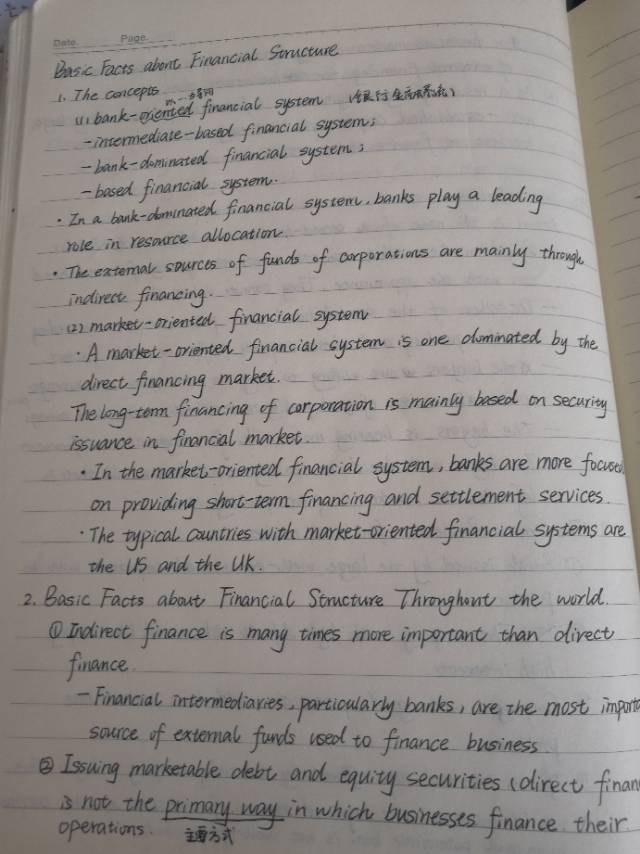 Date. Page.
Basic Facts about Financial Structure
1. The concepts
(1) bank-oriented financial system (银行金融系统)
-intermediate-based financial system;
-bank-dominated financial system;
-based financial system.
· In a bank-dominated financial system, banks play a leading
role in resource allocation.
· The external sources of funds of corporations are mainly through
indirect financing.
(2) market-oriented financial system
· A market-oriented financial system is one dominated by the
direct financing market.
The long-term financing of corporation is mainly based on security
issuance in financial market.
· In the market-oriented financial system, banks are more focused
on providing short-term financing and settlement services.
· The typical countries with market-oriented financial systems are
the US and the UK.
2. Basic Facts about Financial Structure Throughout the world.
① Indirect finance is many times more important than direct
finance.
- Financial intermediaries, particularly banks, are the most importa
source of external funds used to finance business
② Issuing marketable debt and equity securities (direct finan
is not the primary way in which businesses finance their
operations. 主要方式